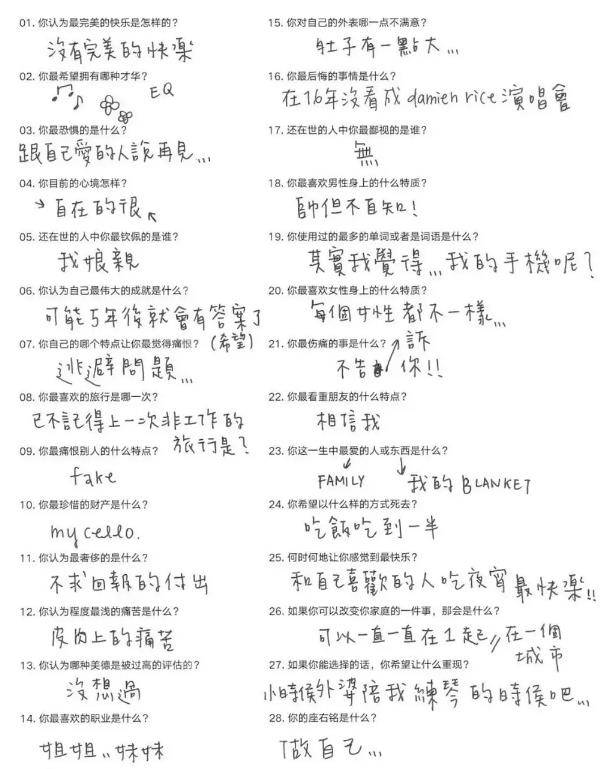 01. 你认为最完美的快乐是怎样的?
沒有完美的快樂
02. 你最希望拥有哪种才华?
EQ
03. 你最恐惧的是什么?
跟自己愛的人說再見...
04. 你目前的心境怎样?
自在的很
05. 还在世的人中你最钦佩的是谁?
我娘親
06. 你认为自己最伟大的成就是什么?
可能5年後就會有答案了
(希望)
07. 你自己的哪个特点让你最觉得痛恨?
逃避問題...
08. 你最喜欢的旅行是哪一次?
已不記得上一次非工作的
旅行是?
09. 你最痛恨别人的什么特点?
fake
10. 你最珍惜的财产是什么?
my cello.
11. 你认为最奢侈的是什么?
不求回報的付出
12. 你认为程度最浅的痛苦是什么?
皮肉上的痛苦
13. 你认为哪种美德是被过高的评估的?
沒想過
14. 你最喜欢的职业是什么?
姐姐..妹妹
15. 你对自己的外表哪一点不满意?
肚子有一點大...
16. 你最后悔的事情是什么?
在16年沒看成damien rice演唱會
17. 还在世的人中你最鄙视的是谁?
無
18. 你最喜欢男性身上的什么特质?
帥但不自知!
19. 你使用过的最多的单词或者是词语是什么?
其實我覺得...我的手機呢?
20. 你最喜欢女性身上的什么特质?
每個女性都不一樣...
21. 你最伤痛的事是什么?
訴
不告你!!
22. 你最看重朋友的什么特点?
相信我
23. 你这一生中最爱的人或东西是什么?
FAMILY 我的BLANKET
24. 你希望以什么样的方式死去?
吃飯吃到一半
25. 何时何地让你感觉到最快乐?
和自己喜歡的人吃夜宵最快樂!!
26. 如果你可以改变你家庭的一件事，那会是什么?
可以一直一直在1起//在一個
城市
27. 如果你能选择的话，你希望让什么重现?
小時候外婆陪我練琴的時侯吧...
28. 你的座右铭是什么?
做自己...